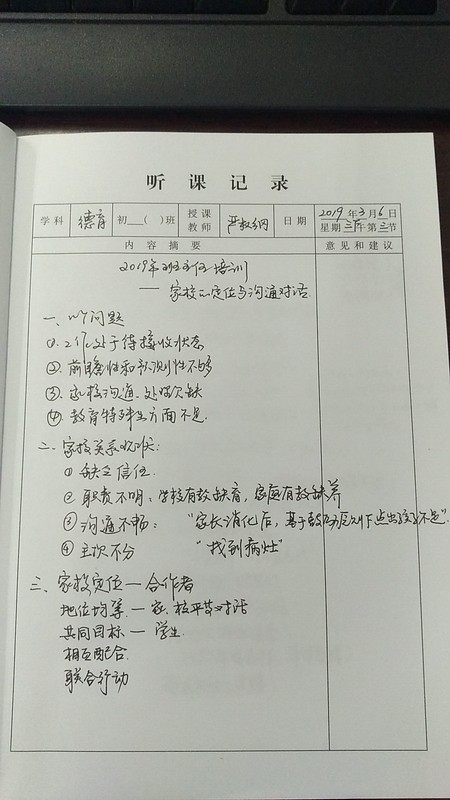 听课记录
学科 德育 初___( )班 授课教师 严 日期 2019年3月6日
星期三下午第三节
内容摘要 意见和建议
2019年班主任培训
—— 家校定位与沟通对话
一、四个问题
①. 工作处于待接收状态
②. 前瞻性和预测性不够
③. 家校沟通、处理欠缺
④. 教育特殊生方面不足.
二、家校关系现状:
① 缺乏信任.
② 职责不明:学校有教缺育,家庭有教缺养
③ 沟通不畅: “家长消化后,基于鼓励原则下点出孩子不足”.
④ 主次不分 “找到病灶”
三、家校定位—合作者
地位均等 — 家校平等对话
共同目标 — 学生.
相互配合.
联合行动